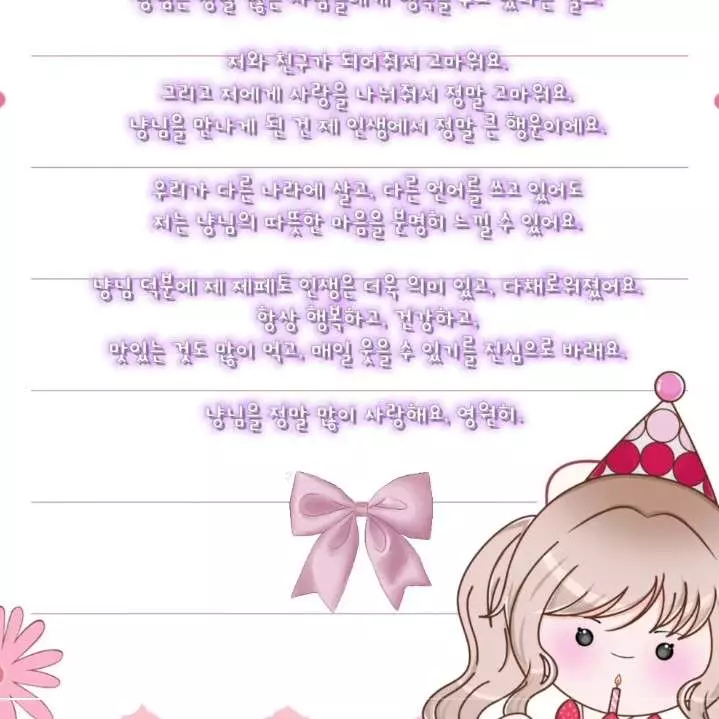 저와 친구가 되어줘서 고마워요.
그리고 저에게 사랑을 나눠줘서 정말 고마워요.
냥님을 만나게 된 건 제 인생에서 정말 큰 행운이에요.
우리가 다른 나라에 살고, 다른 언어를 쓰고 있어도
저는 냥님의 따뜻한 마음을 분명히 느낄 수 있어요.
냥님 덕분에 제 제페토 인생은 더욱 의미 있고, 다채로워졌어요.
항상 행복하고, 건강하고,
맛있는 것도 많이 먹고, 매일 웃을 수 있기를 진심으로 바래요.
냥님을 정말 많이 사랑해요, 영원히.